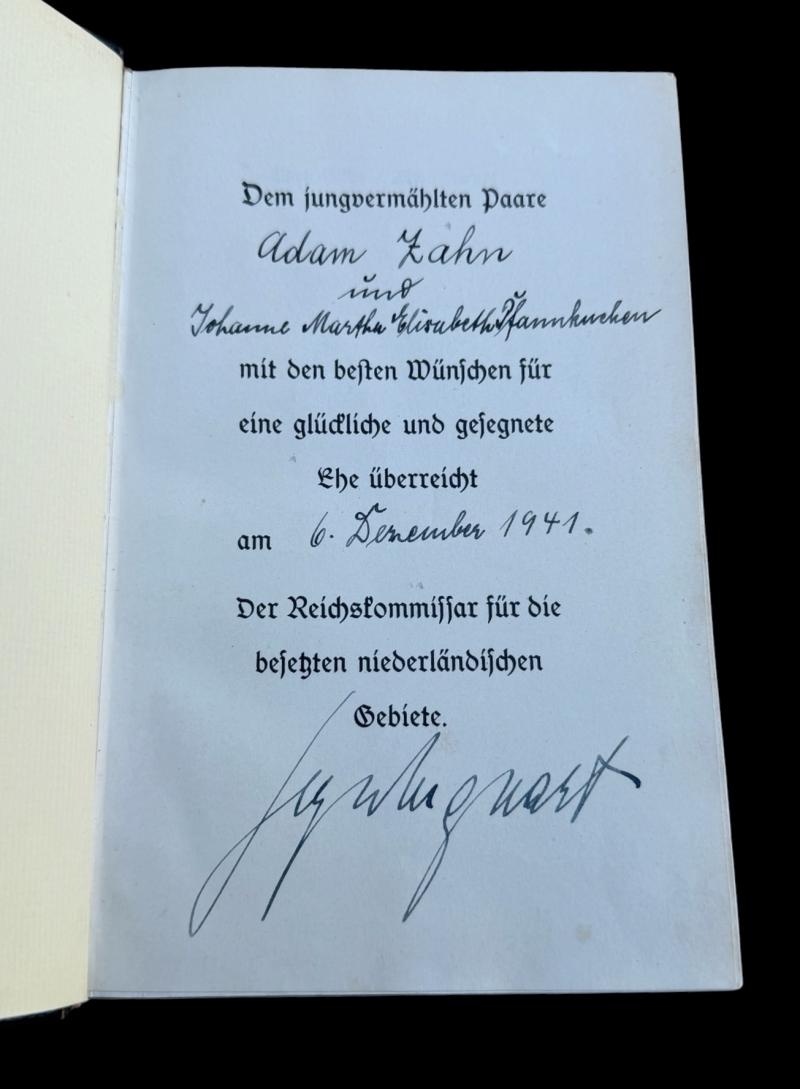 Dem jungvermählten Paare
Adam Zahn
und
Johanne Martha Elisabeth Pfannkuchen
mit den besten Wünschen für
eine glückliche und gesegnete
Ehe überreicht
am 6. Dezember 1941.
Der Reichskommissar für die
besetzten niederländischen
Gebiete.
Seyss-Inquart